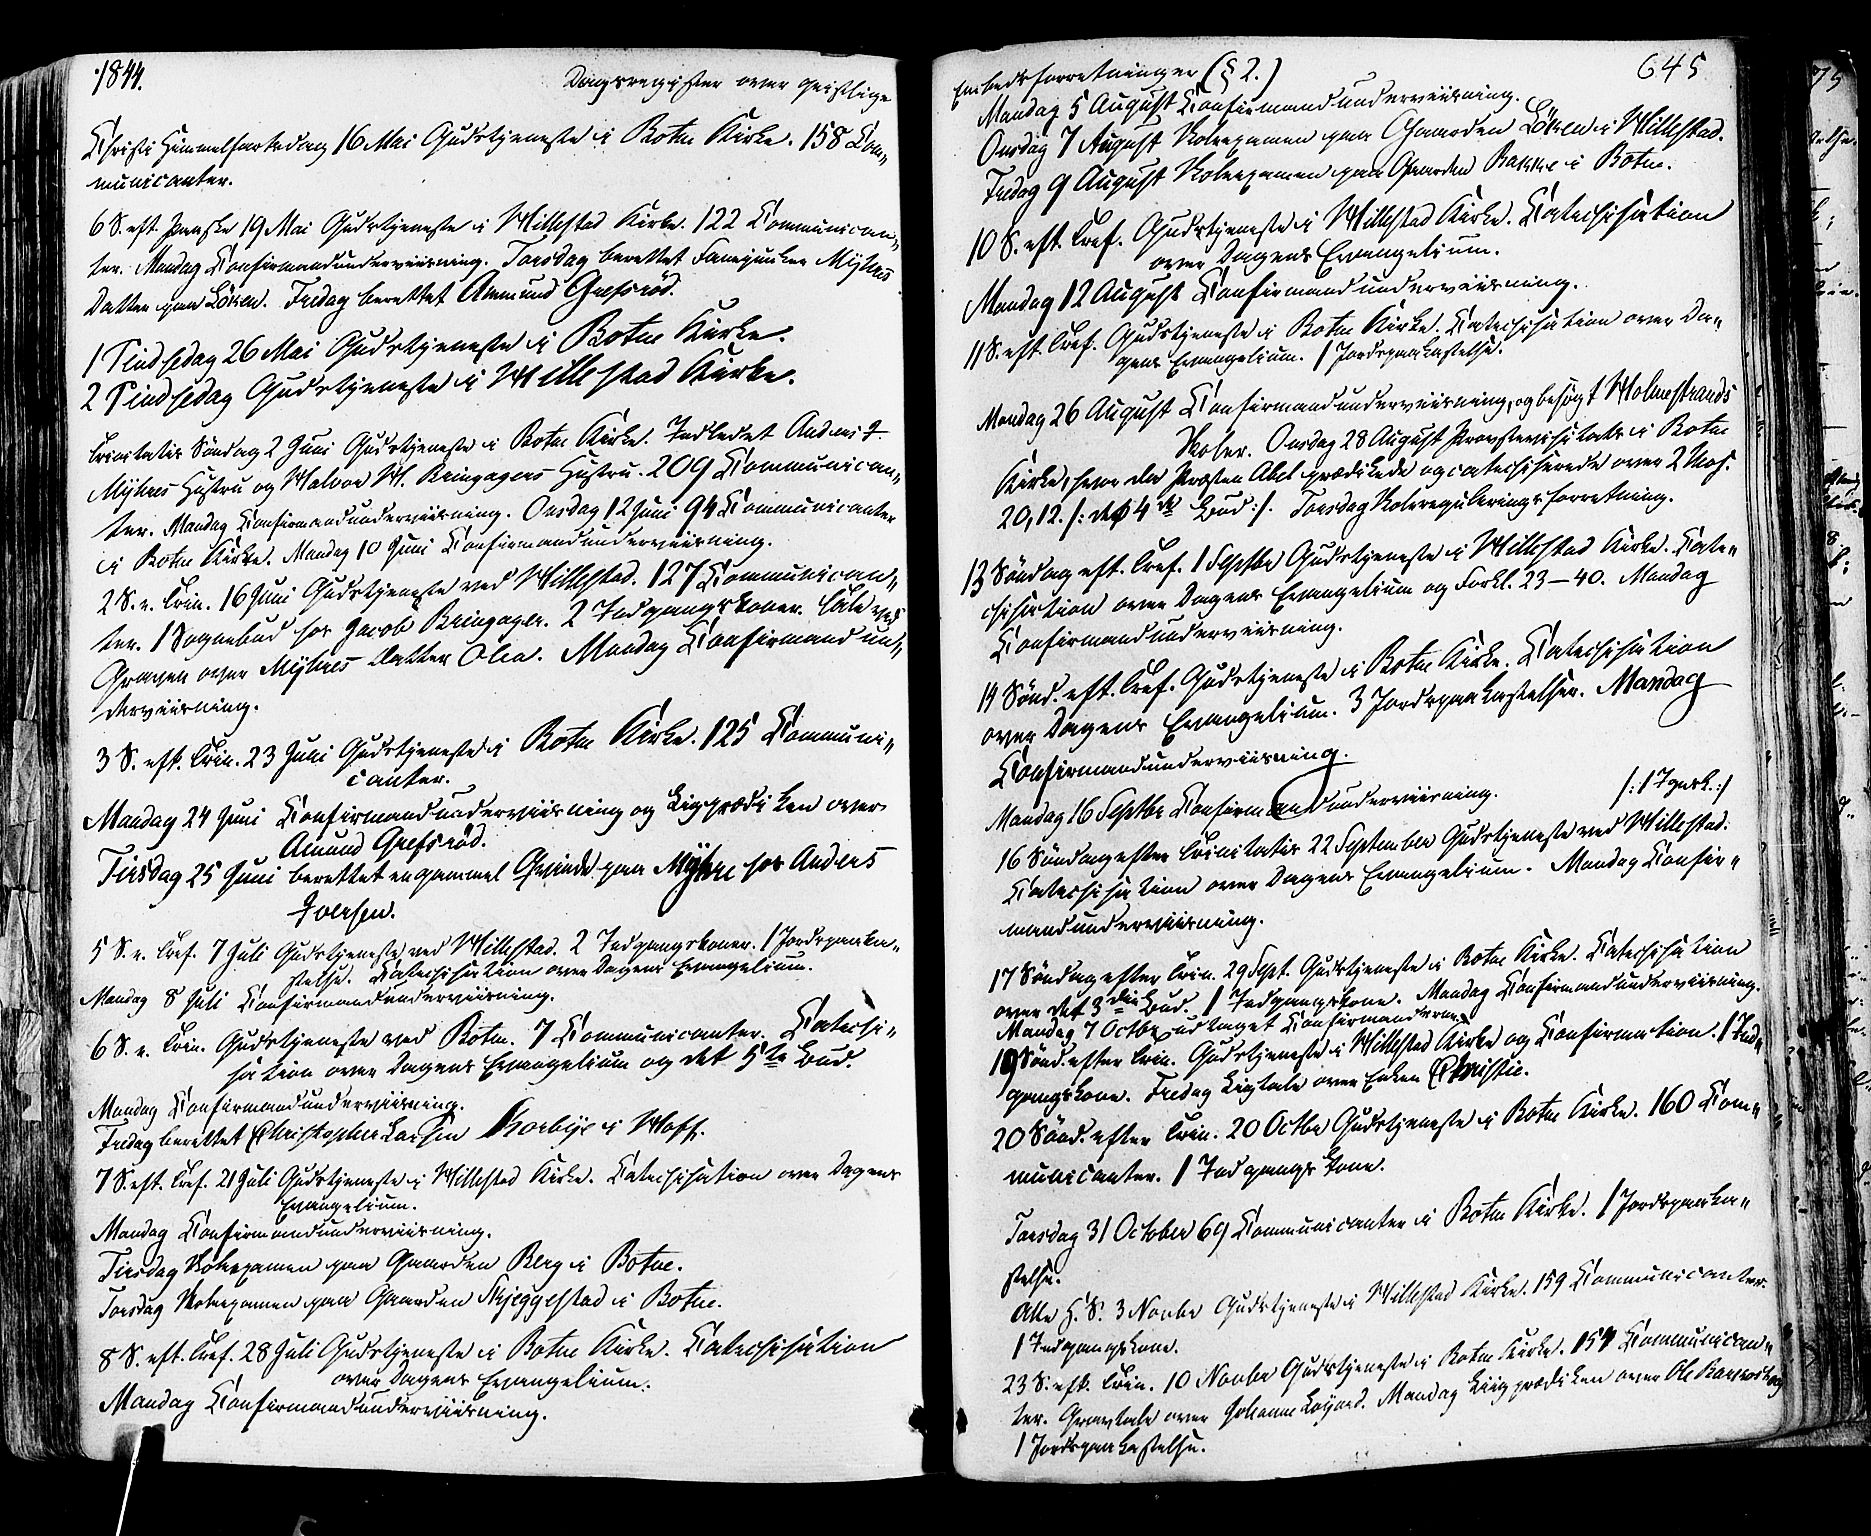 1844.
Dagsregister over geistlige
Christi Himmelfartsdag 16 Mai Gudstjeneste i Botne Kirke. 158 Com„
municanter.
6 S. eft. Paaske 19 Mai Gudstjeneste i Hillestad Kirke. 122 Communican„
ter. Mandag Confirmandunderviisning. Torsdag berettet Fanejunker Myhres
Datter paa Løken. Fredag berettet Ammund Grefsrød.
1 Pindsedag 26 Mai Gudstjeneste i Botne Kirke.
2 Pindsedag Gudstjeneste i Hillestad Kirke.
Trinitatis Søndag 2 Juni Gudstjeneste i Botne Kirke. Indledet Anders J.
Myhres Hustru og Halvor H. Bringagers Hustru. 209 Communican„
ter. Mandag Confirmandunderviisning. Onsdag 12 Juni 94 Communicanter
i Botne Kirke. Mandag 10 Juni Confirmandunderviisning.
2 S. e. Trin. 16 Juni Gudstjeneste ved Hillestad. 127 Communican„
ter. 1 Sognebud hos Jacob Bringager. 2 Indgangskoner. Tale ved
Graven over Myhres Datter Olea. Mandag Confirmandun„
derviisning.
3 S. eft. Trin. 23 Juni Gudstjeneste i Botne Kirke. 125 Communi„
canter.
Mandag 24 Juni Confirmandunderviisning og Liigprædiken over
Amund Grefsrød.
Tirsdag 25 Juni berettet en gammel Qvinde paa Myhre hos Anders
Joensen.
5 S. e. Tref. 7 Juli Gudstjeneste ved Hillestad. 2 Indgangskoner. 1 Jordspaaka„
stelse. Catechisation over Dagens Evangelium.
Mandag 8 Juli Confirmandunderviisning.
6 S. e. Trin. Gudstjeneste ved Botne. 7 Communicanter. Catechi„
sation over Dagens Evangelium og det 5te Bud.
Mandag Confirmandunderviisning.
Fredag berettet Christopher Larsen i Hoff.
7 S. eft. Tref. 21 Juli Gudstjeneste i Hillestad Kirke. Catechisation over Dagens
Evangelium.
Mandag Confirmandunderviisning.
Tirsdag Skoleexamen paa Gaarden Berg i Botne.
Torsdag Skoleexamen paa Gaarden Skjeggestad i Botne.
8 S. eft. Tref. 28 Juli Gudstjeneste i Botne Kirke. Catechisation
over Dagens Evangelium.
Mandag Confirmandunderviisning.
Embedsforretninger (§ 2.)
645
Mandag 5 August Confirmandunderviisning.
Onsdag 7 August Skoleexamen paa Gaarden Løken i Hillestad.
Fredag 9 August Skoleexamen paa Gaarden Bakke i Botne.
10 S. eft. Tref. Gudstjeneste i Hillestad Kirke. Catechisation
over Dagens Evangelium.
Mandag 12 August Confirmandunderviisning.
11 S. eft. Tref. Gudstjeneste i Botne Kirke. Catechisation over Da„
gens Evangelium. 1 Jordspaakastelse.
Mandag 26 August Confirmandunderviisning, og besøgt Holmestrands
Skoler. Onsdag 28 August Provstevisitats i Botne
Kirke, hvor da Provsten Abel prædikede og catechiserede over 2 Mos.
20,12. /: det 4de Bud :/. Torsdag Skolereguleringsforretning.
13 Søndag eft. Tref. 1 Septbr Gudstjeneste i Hillestad Kirke. Cate„
chisation over Dagens Evangelium og Forkl. 23—40. Mandag
Confirmandunderviisning.
14 Sønd. eft. Tref. Gudstjeneste i Botne Kirke. Catechisation
over Dagens Evangelium. 3 Jordspaakastelser. Mandag
Confirmandunderviisning.
Mandag 16 Septbr Confirmandunderviisning.
/: 1 Igsk. :/
16 Søndag efter Trinitatis 22 September Gudstjeneste ved Hillestad.
Catechisation over Dagens Evangelium. Mandag Confir„
mandunderviisning.
17 Søndag efter Trin. 29 Sept. Gudstjeneste i Botne Kirke. Catechisation
over det 3die Bud. 1 Indgangskone. Mandag Confirmandunderviisning.
Mandag 7 Octbr udtaget Confirmanderne.
19 Sønd. efter Trin. Gudstjeneste i Hillestad Kirke og Confirmation. 1 Ind„
gangskone. Fredag Liigtale over Enken Christie.
20 Sønd. efter Trin. 20 Octbr Gudstjeneste i Botne Kirke. 160 Com„
municanter. 1 Indgangskone.
Torsdag 31 October 69 Communicanter i Botne Kirke. 1 Jordspaaka„
stelse.
Alle H. S. 3 Novbr Gudstjeneste i Hillestad Kirke. 159 Communicanter.
1 Indgangskone.
23 S. eft. Trin. 10 Novbr Gudstjeneste i Botne Kirke. 154 Communican„
ter. Gravtale over Johanne. Mandag Liigprædiken over Ole
1 Jordspaakastelse.